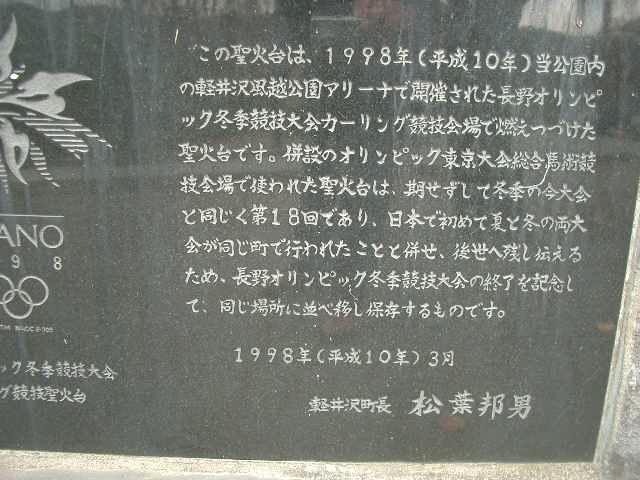 この聖火台は、1998年(平成10年)当公園内
の軽井沢風越公園アリーナで開催された長野オリンピ
ック冬季競技大会カーリング競技会場で燃えつづけた
聖火台です。併設のオリンピック東京大会総合馬術競
技会場で使われた聖火台は、期せずして冬季の今大会
と同じく第18回であり、日本で初めて夏と冬の両大
会が同じ町で行われたことと併せ、後世へ残し伝える
ため、長野オリンピック冬季競技大会の終了を記念し
て、同じ場所に並べ移し保存するものです。
1998年(平成10年)3月
軽井沢町長 松葉邦男
ANO
98
ック冬季競技大会
グ競技聖火台